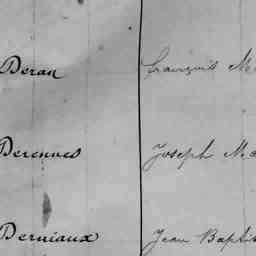 Deran François
Derennes Joseph
Derniaux Jean Baptis